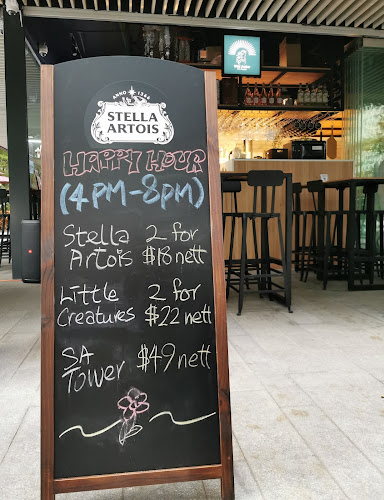 ANNO 1366
STELLA
ARTOIS
HAPPY HOUR
(4PM-8PM)
Stella 2 for
Artois $18 nett
Little 2 for
Creatures $22 nett
SA $49 nett
Tower